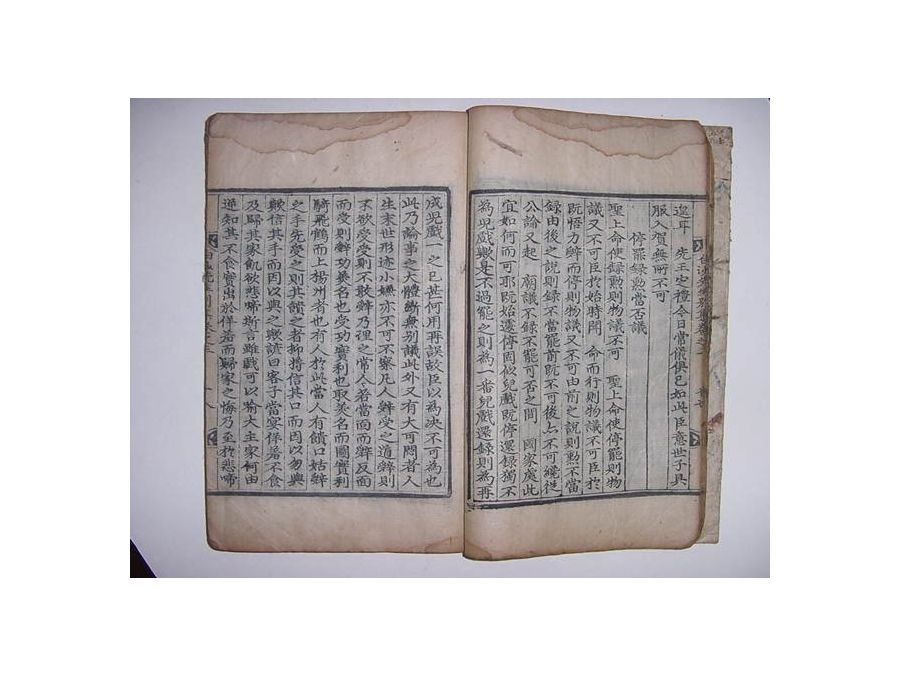 先王定禮今日常儀俱已如此臣意世子具
服入賀無所不可
停録勲當否議
聖上命使録勲則物議不可 聖上命使停罷則物
議又不可臣於始時 命而行則物議不可臣於
既悟力辭而停則物議又不可由前之說則勲不當
録由後之說則録不當罷前既不可後亦不可纔從
公論又起 朝議不録不罷可否之間 國家處此
宜如何而可耶既始遽停固似兒戲既停還録獨不
為兒戲歟是不過罷之則為一番兒戲還録則為再
成児戲一之已甚何用再誤故臣以為决不可為也
此乃論事之大體断無别議此外又有大可悶者人
生末世形迹小嫌亦不可不察凡人辭受之道辭則
不欲受受則不敢辭乃理之常今若當面而辭反面
而受則辭功美名也受功實利也取美名而圖實利
騎飛鶴而上楊州者也有人於此當人有饋口姑辭
之手先受之則其饋之者抑將信其口而因以勿與
歟信其手而因以與之歟諺曰客子當宴佯若不食
及歸其家飢欲悲啼斯言雖戲可以喻大主家何由
逆知其不食實出於佯若而歸家之悔乃至於悲啼